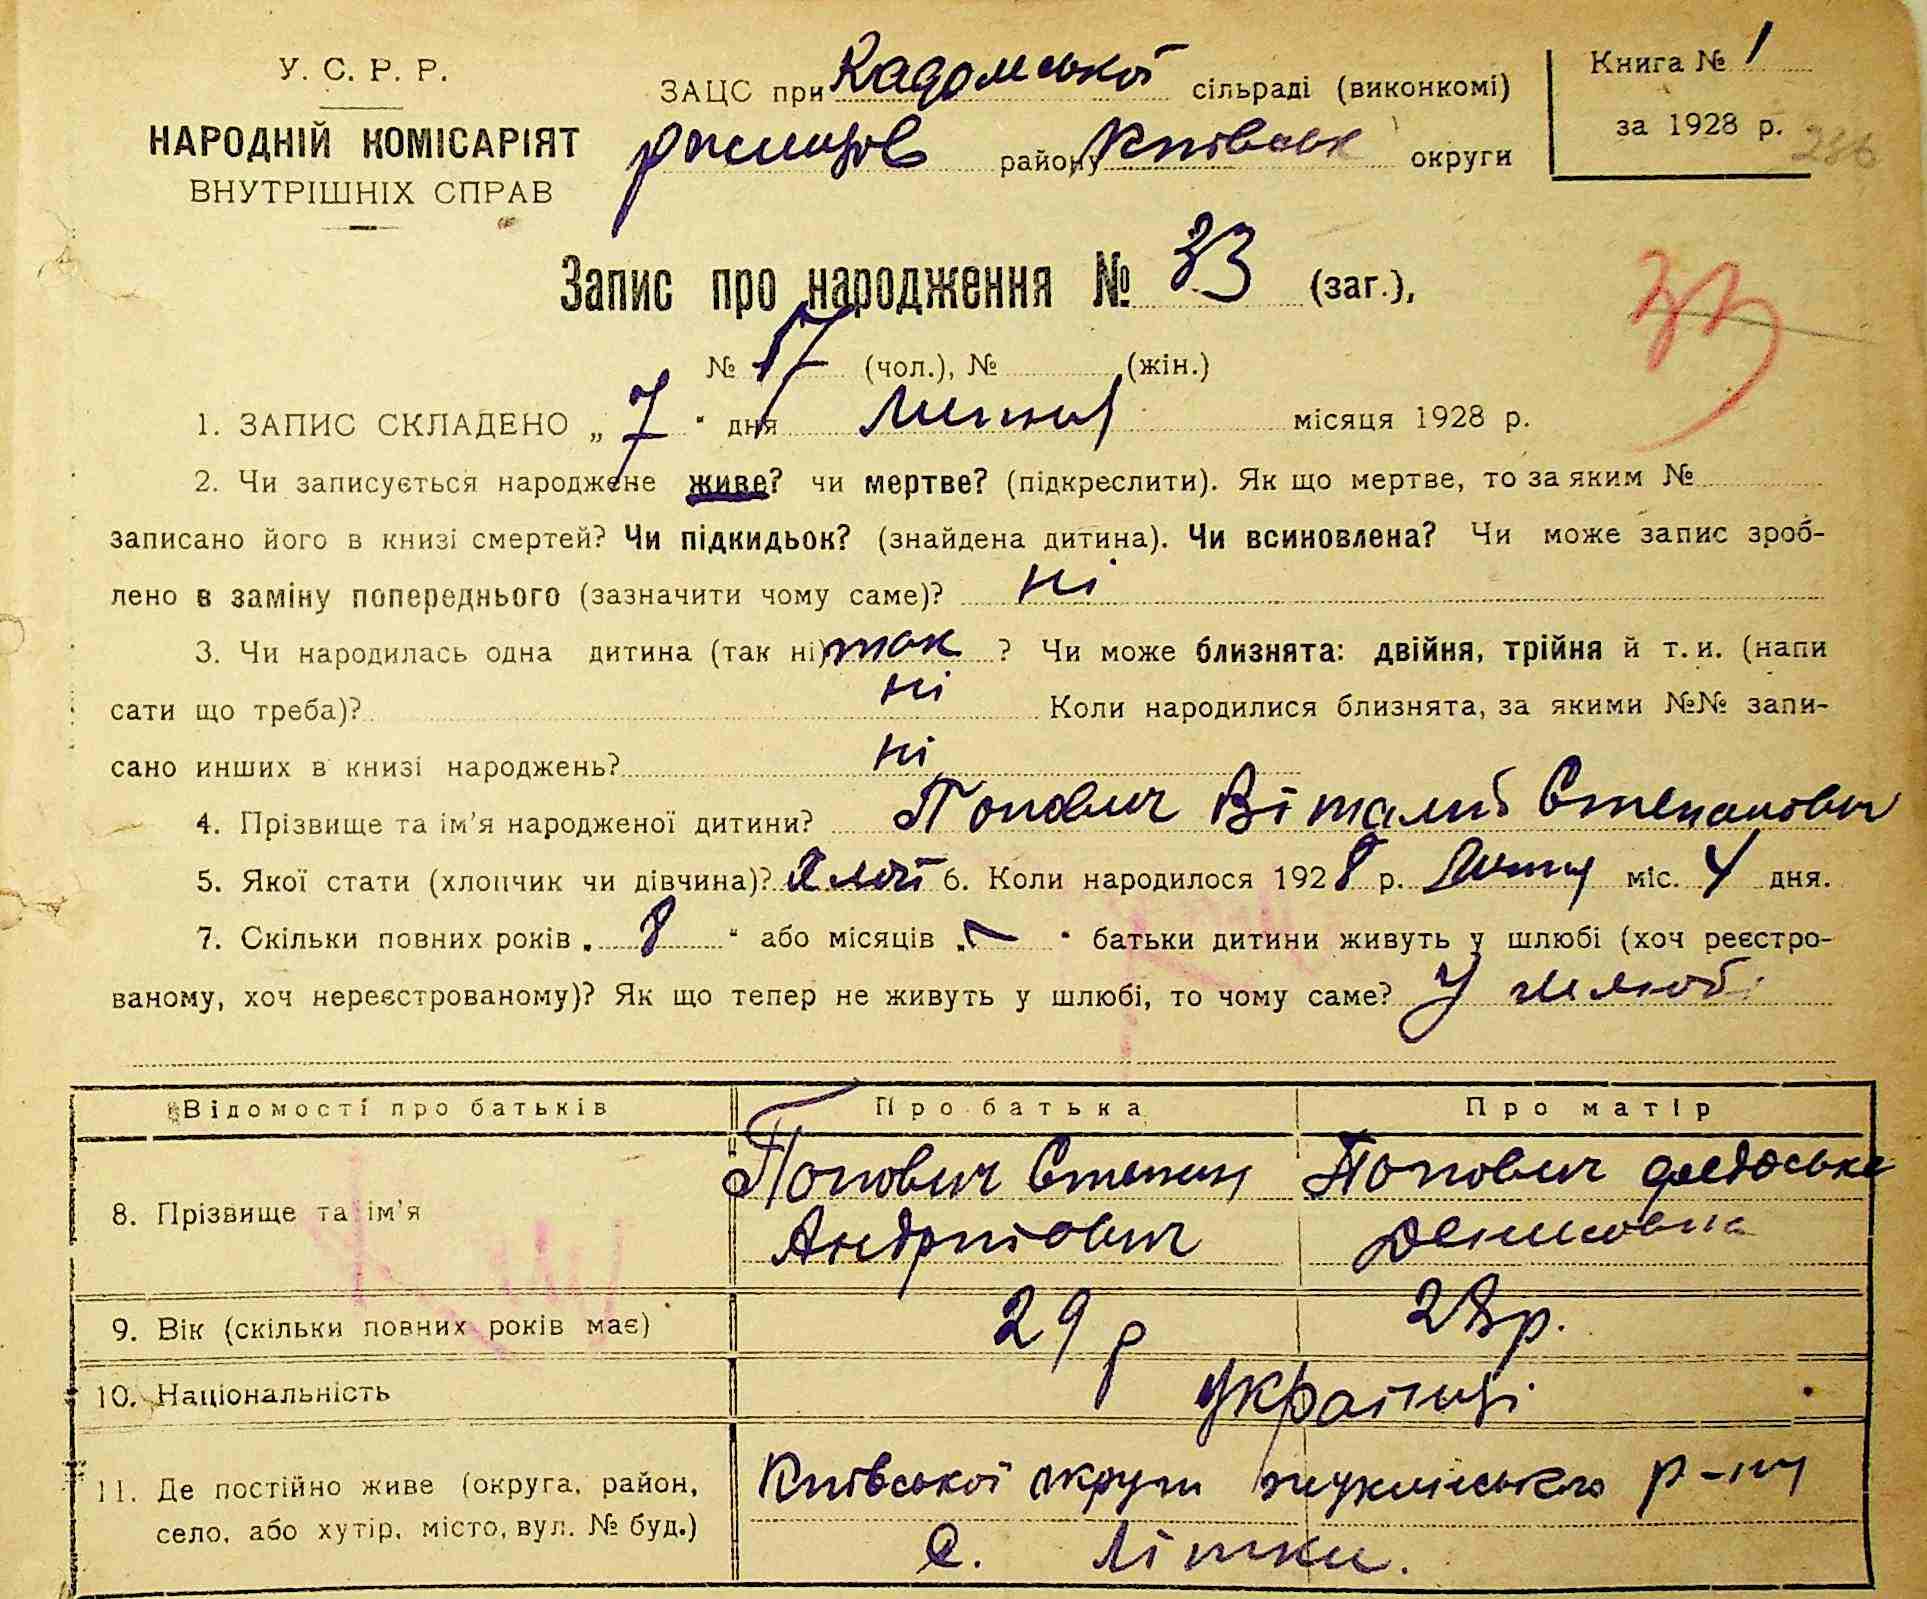 У. С. Р. Р.
НАРОДНІЙ КОМІСАРІЯТ
ВНУТРІШНІХ СПРАВ
ЗАЦС при Кадомської сільраді (виконкомі)
району Київськ округи
Книга № 1
за 1928 р.
286
Запис про народження № 33 (заг.),
33
№ 17 (чол.), № (жін.)
1. ЗАПИС СКЛАДЕНО „ 7 " дня Липня місяця 1928 р.
2. Чи записується народжене живе? чи мертве? (підкреслити). Як що мертве, то за яким №
записано його в книзі смертей? Чи підкидьок? (знайдена дитина). Чи всиновлена? Чи може запис зроб-
лено в заміну попереднього (зазначити чому саме)? ні
3. Чи народилась одна дитина (так ні) так ? Чи може близнята: двійня, трійня й т. и. (напи
сати що треба)? ні Коли народилися близнята, за якими №№ запи-
сано инших в книзі народжень? ні
4. Прізвище та ім'я народженої дитини? Попович Віталий Степанович
5. Якої стати (хлопчик чи дівчина)? 6. Коли народилося 1928 р. Липня міс. 4 дня.
7. Скільки повних років „ 8 " або місяців „ — " батьки дитини живуть у шлюбі (хоч реєстро-
ваному, хоч нереєстрованому)? Як що тепер не живуть у шлюбі, то чому саме? У шлюбі
Відомості про батьків Про батька Про матір
8. Прізвище та ім'я Попович Степан Попович
Андріїович Денисовна
9. Вік (скільки повних років має) 29 р 28 р.
10. Національність українці
11. Де постійно живе (округа, район,
село, або хутір, місто, вул. № буд.)
Київської округи р-ну
с. Літки.